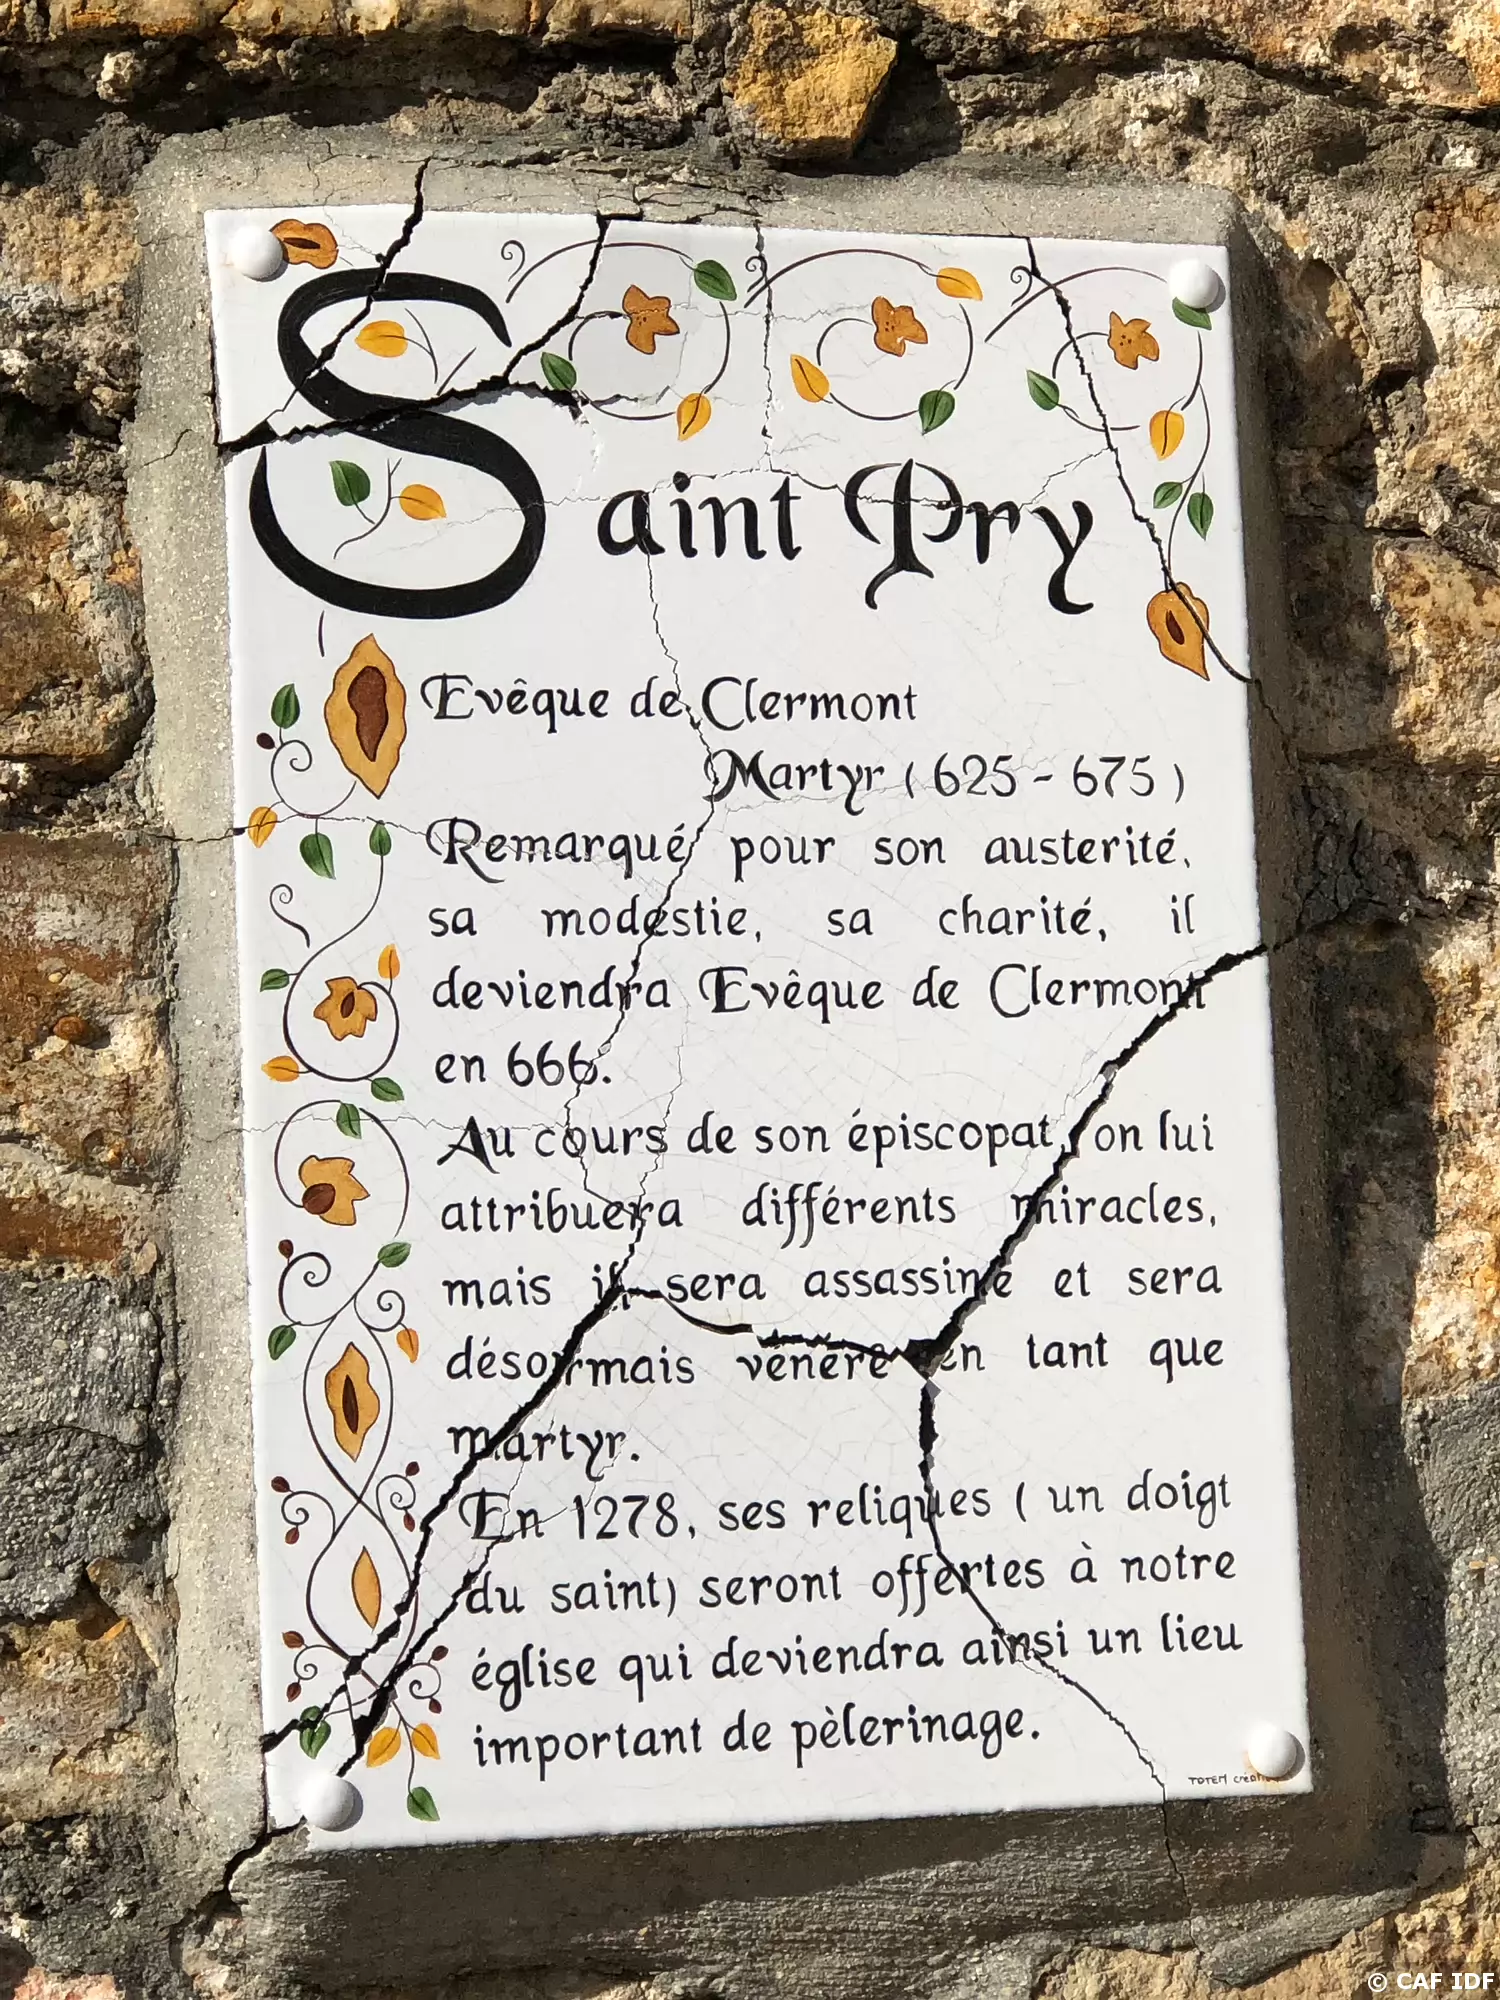 Saint Pry
Evêque de Clermont
Martyr ( 625 - 675 )
Remarqué pour son austerité,
sa modestie, sa charité, il
deviendra Evêque de Clermont
en 666.
Au cours de son épiscopat, on lui
attribuera différents miracles,
mais il sera assassiné et sera
désormais vénéré en tant que
martyr.
En 1278, ses reliques ( un doigt
du saint) seront offertes à notre
église qui deviendra ainsi un lieu
important de pèlerinage.
TOTEM
© CAF IDF